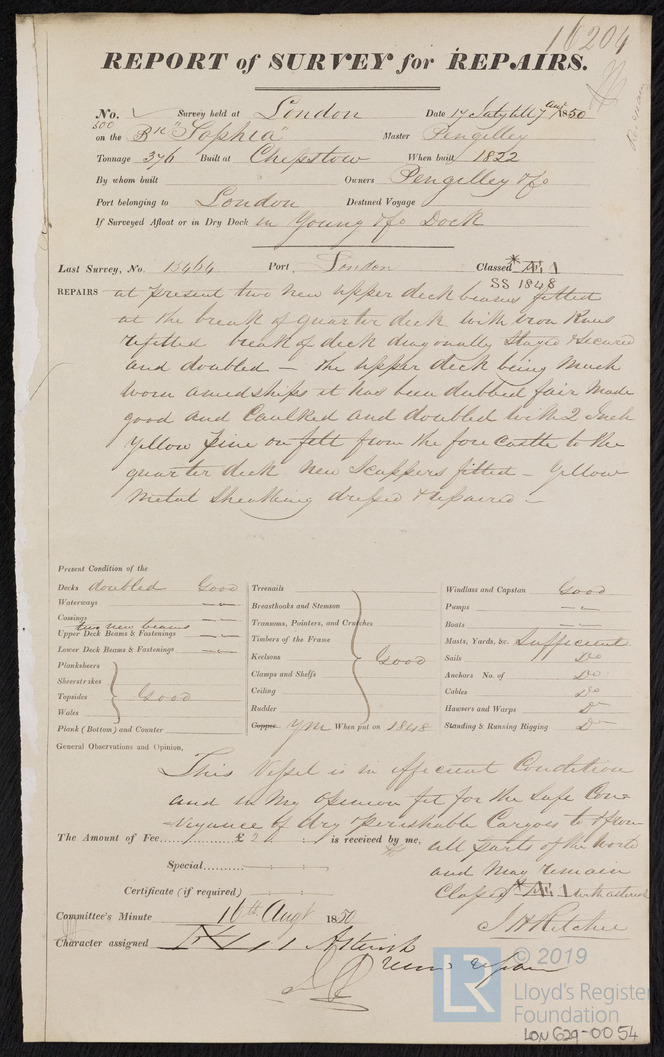 16204
REPORT of SURVEY for REPAIRS.
No. Survey held at London Date 17 July till 7 Augt 1850
500
on the Bk "Sophia" Master Pengelley
Tonnage 376 Built at Chepstow When built 1822
By whom built Owners Pengelley & Co
Port belonging to London Destined Voyage
If Surveyed Afloat or in Dry Dock in Young & Co Dock
Last Survey, No. 15464 Port London Classed * Æ 1
SS 1848
REPAIRS at present two new upper deck beams fitted
at the break of quarter deck with iron Knees
refitted break of deck diagonally stayed & secured
and doubled – the upper deck being much
worn amidships it has been dubbed fair made
good and Caulked and doubled with 2 Inch
Yellow pine on felt from the fore castle to the
quarter deck New Scuppers fitted – Yellow
Metal Sheathing dressed & repaired –
Present Condition of the
Decks doubled Good
Waterways
Coamings
two new beams
Upper Deck Beams & Fastenings
Lower Deck Beams & Fastenings
Planksheers
Sheerstrakes
Topsides Good
Wales
Plank (Bottom) and Counter
Treenails
Breasthooks and Stemson
Transoms, Pointers, and Crutches
Timbers of the Frame
Keelsons Good
Clamps and Shelfs
Ceiling
Rudder
Copper YM When put on 1848
Windlass and Capstan Good
Pumps
Boats
Masts, Yards, &c. Sufficient
Sails Do
Anchors No. of Do
Cables Do
Hawsers and Warps Do
Standing & Running Rigging Do
General Observations and Opinion,
This Vessel is in efficient Condition
and in my opinion fit for the safe Con-
veyance of dry & perishable Cargoes to & from
all parts of the World
and may remain
Classed * Æ 1 with asterisk
J H Ritchie
The Amount of Fee £ 2 is received by me,
Special
Certificate (if required)
Committee's Minute 16th Augt 1850
Character assigned
LR
© 2019
Lloyd's Register
Foundation
LON 629-0054